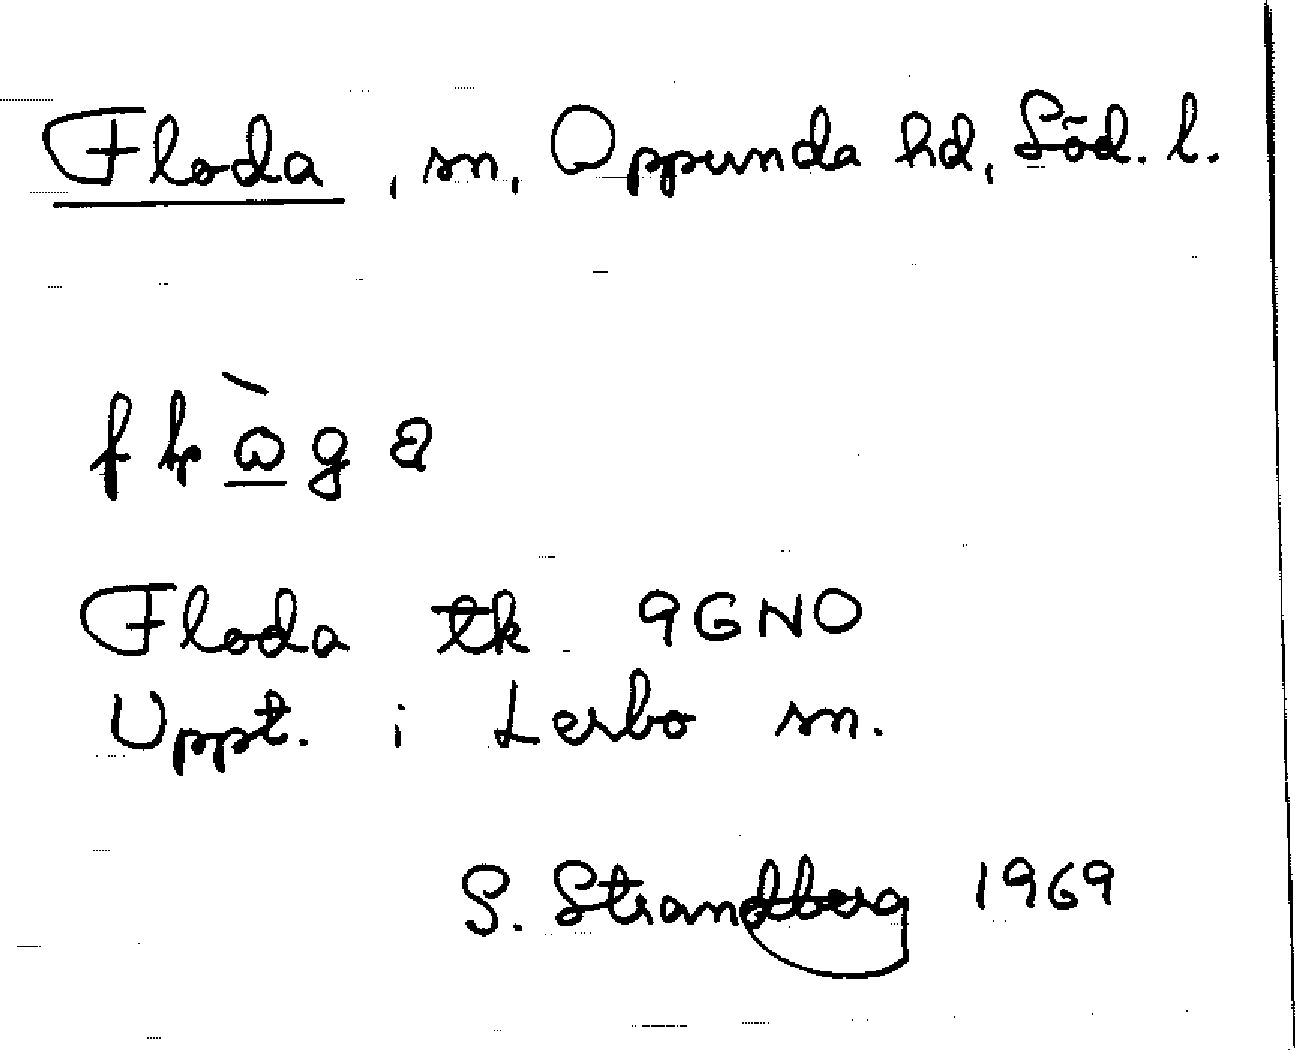 Floda, sn, Oppunda hd, Söd. l.
Floda tk 9GNO
Uppt. i Lerbo sn.
S. Strandberg 1969